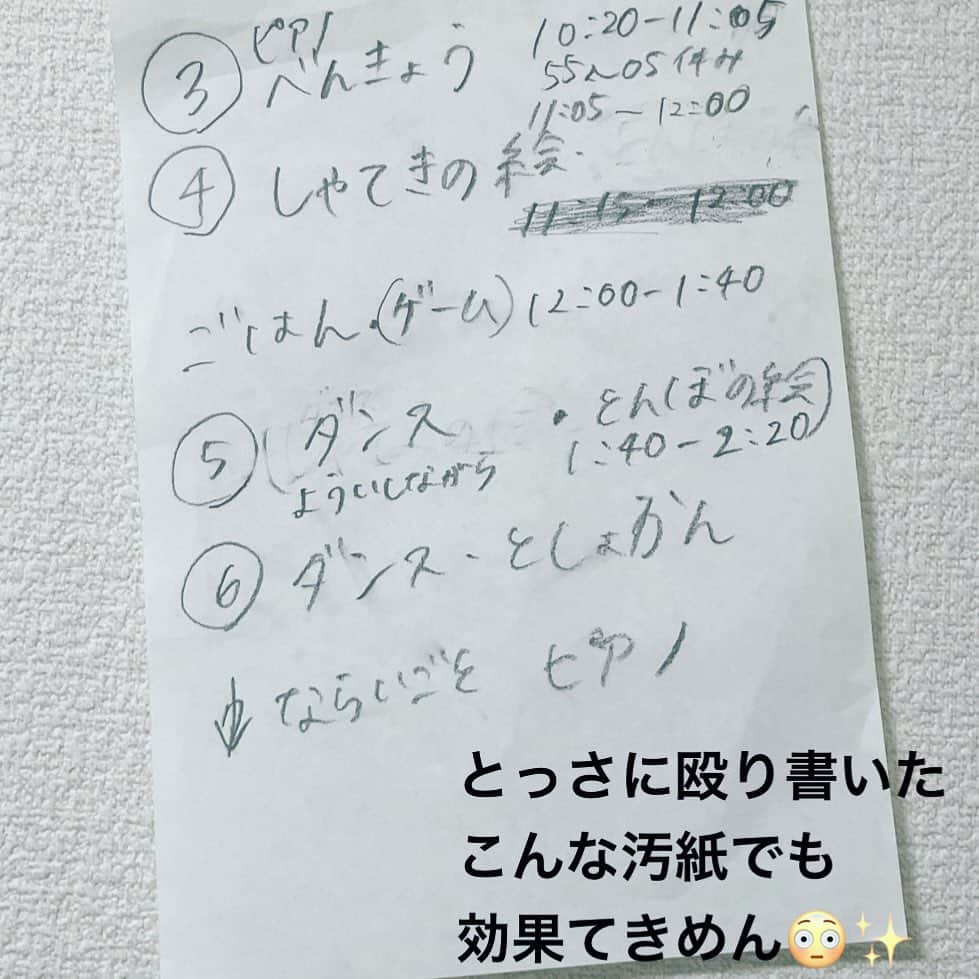 ピアノ
③ べんきょう 10:20-11:05
55~05 休み
11:05-12:00
④ しゃてきの絵
11:15-12:00
ごはん・(ゲーム) 12:00-1:40
⑤ (ダンス ・とんぼの絵)
よういしながら 1:40-2:20
⑥ ダンス・としょかん
↓ ならいごと ピアノ
とっさに殴り書いた
こんな汚紙でも
効果てきめん😳✨